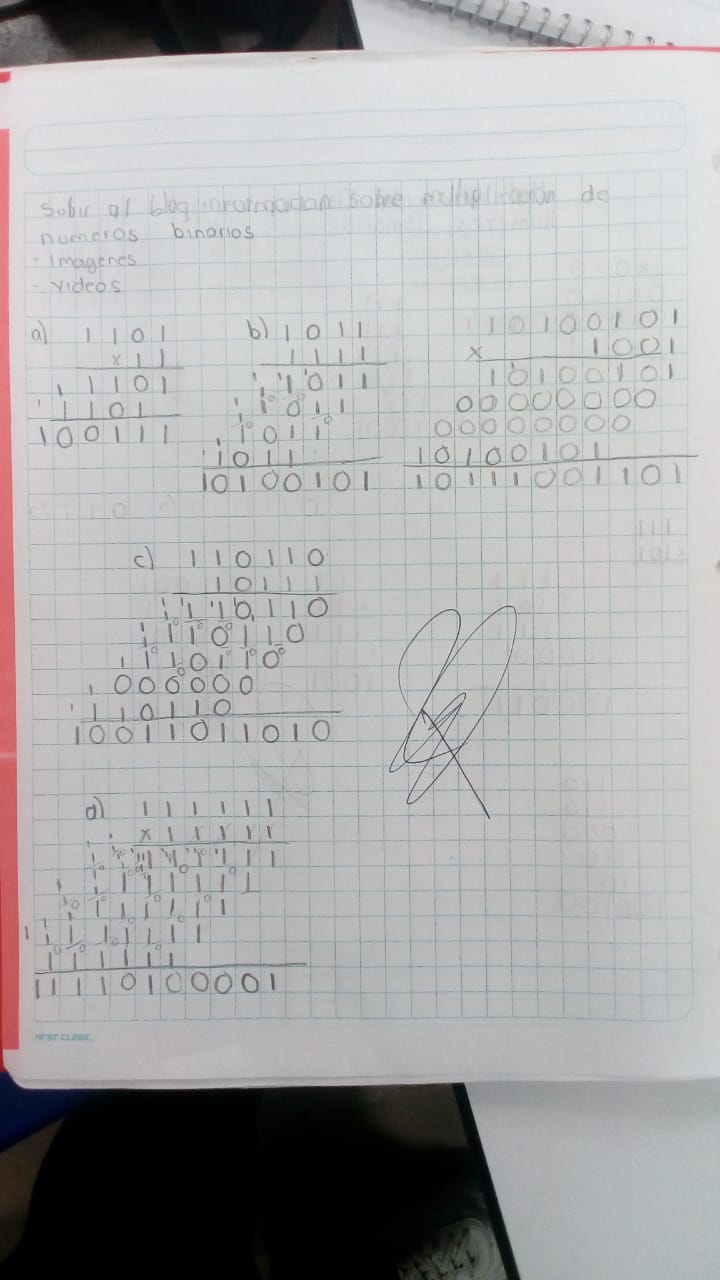 Subir al blog informacion sobre multiplicación de
numeros binarios
- Imagenes
- videos
a) 1101
x11
1101
1101
100111
b) 1011
1111
1011
1011
1011
1011
10100101
10100101
x 1001
10100101
00000000
00000000
10100101
10111001101
c) 110110
10111
110110
110110
110110
000000
110110
10011011010
d) 111111
x11111
111111
111111
111111
111111
111111
11110100001
FIRST CLASS